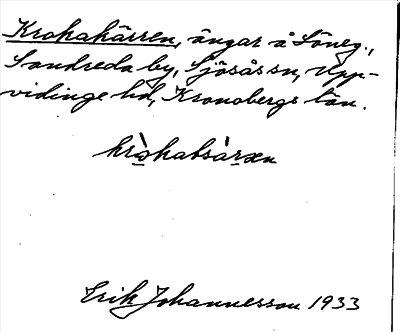 Krokakärren, ängar å Söneg.,
Sandreda by, Sjösås sn, Upp-
vidinge hd, Kronobergs län.
Erik Johannesson 1933